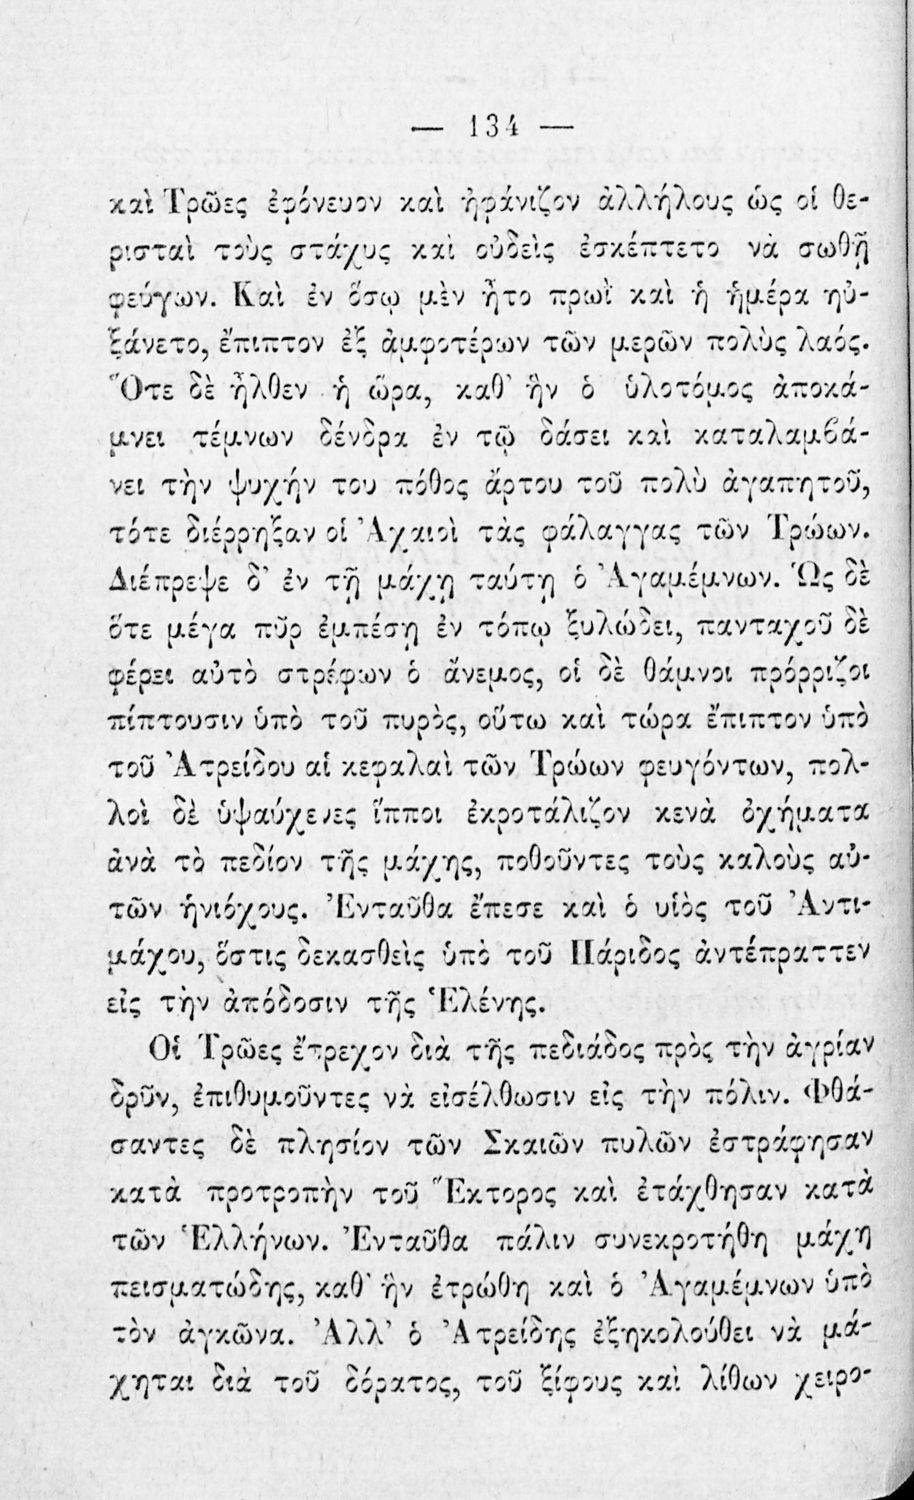 — 134 —
καὶ Τρῶες ἐφόνευον καὶ ἠφάνιζον ἀλλήλους ὡς οἱ θε-
ρισταὶ τοὺς στάχυς καὶ οὐδεὶς ἐσκέπτετο νὰ σωθῇ
φεύγων. Καὶ ἐν ὅσῳ μὲν ἦτο πρωῒ καὶ ἡ ἡμέρα ηὐ-
ξάνετο, ἔπιπτον ἐξ ἀμφοτέρων τῶν μερῶν πολὺς λαός.
Ὅτε δὲ ἦλθεν ἡ ὥρα, καθ' ἣν ὁ ὑλοτόμος ἀποκά-
μνει τέμνων δένδρα ἐν τῷ δάσει καὶ καταλαμβά-
νει τὴν ψυχήν του πόθος ἄρτου τοῦ πολὺ ἀγαπητοῦ,
τότε διέρρηξαν οἱ Ἀχαιοὶ τὰς φάλαγγας τῶν Τρώων.
Διέπρεψε δ' ἐν τῇ μάχῃ ταύτῃ ὁ Ἀγαμέμνων. Ὡς δὲ
ὅτε μέγα πῦρ ἐμπέσῃ ἐν τόπῳ ξυλώδει, πανταχοῦ δὲ
φέρει αὐτὸ στρέφων ὁ ἄνεμος, οἱ δὲ θάμνοι πρόρριζοι
πίπτουσιν ὑπὸ τοῦ πυρὸς, οὕτω καὶ τώρα ἔπιπτον ὑπὸ
τοῦ Ἀτρείδου αἱ κεφαλαὶ τῶν Τρώων φευγόντων, πολ-
λοὶ δὲ ὑψαύχενες ἵπποι ἐκροτάλιζον κενὰ ὀχήματα
ἀνὰ τὸ πεδίον τῆς μάχης, ποθοῦντες τοὺς καλοὺς αὐ-
τῶν ἡνιόχους. Ἐνταῦθα ἔπεσε καὶ ὁ υἱὸς τοῦ Ἀντι-
μάχου, ὅστις δεκασθεὶς ὑπὸ τοῦ Πάριδος ἀντέπραττεν
εἰς τὴν ἀπόδοσιν τῆς Ἑλένης.
Οἱ Τρῶες ἔτρεχον διὰ τῆς πεδιάδος πρὸς τὴν ἀγρίαν
δρῦν, ἐπιθυμοῦντες νὰ εἰσέλθωσιν εἰς τὴν πόλιν. Φθά-
σαντες δὲ πλησίον τῶν Σκαιῶν πυλῶν ἐστράφησαν
κατὰ προτροπὴν τοῦ Ἕκτορος καὶ ἐτάχθησαν κατὰ
τῶν Ἑλλήνων. Ἐνταῦθα πάλιν συνεκροτήθη μάχη
πεισματώδης, καθ' ἣν ἐτρώθη καὶ ὁ Ἀγαμέμνων ὑπὸ
τὸν ἀγκῶνα. Ἀλλ' ὁ Ἀτρείδης ἐξηκολούθει νὰ μά-
χηται διὰ τοῦ δόρατος, τοῦ ξίφους καὶ λίθων χειρο-